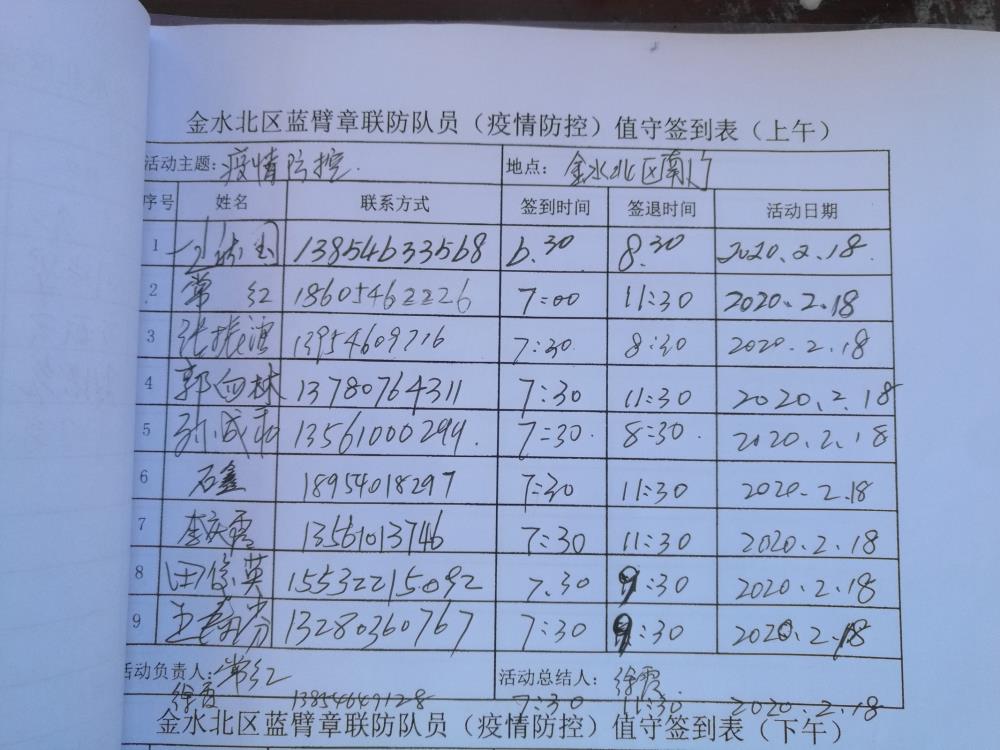 金水北区蓝臂章联防队员（疫情防控）值守签到表（上午）
活动主题：疫情防控. 地点：金水北区南门
序号 姓名 联系方式 签到时间 签退时间 活动日期
1 13854633568 6.30 8.30 2020.2.18.
2 常红 18605462226 7:00 11:30 2020.2.18
3 张振 13954609716 7:30 8:30 2020.2.18
4 郭向林 13780764311 7:30 11:30 2020.2.18
5 孙成和 13561000299. 7:30. 8:30. 2020.2.18
6 石鑫 18954018297 7:30 11:30 2020.2.18
7 李庆霞 13561013746 7:30 11:30 2020.2.18
8 田俊英 15532215092 7.30 9:30 2020.2.18
9 王秀芬 13280360767 7:30 9:30 2020.2.18
活动负责人：常红 活动总结人：徐霞.
徐霞 13854649128 7:30 11:30 2020.2.18
金水北区蓝臂章联防队员（疫情防控）值守签到表（下午）